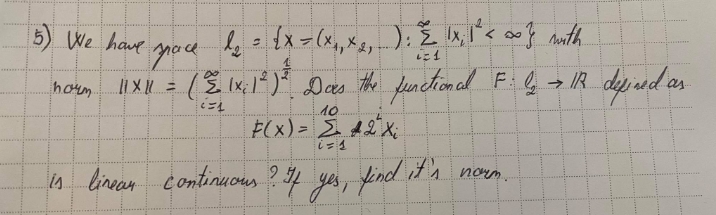 5) We have space l₂ = {x = (x₁, x₂, ...) : ∑_{i=1}^{∞} |xᵢ|² < ∞} with
norm ||x|| = (∑_{i=1}^{∞} |xᵢ|²)^{1/2}. Does the functional F: l₂ → ℝ defined as
F(x) = ∑_{i=1}^{10} 2^i xᵢ
is linear continuous? If yes, find it's norm.